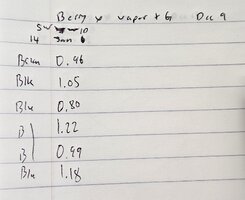 Berry x vapor x G Dec 9
5 10
14 Jan 6
0.46
Blk 1.05
Blu 0.80
B 1.22
B 0.49
Blu 1.18